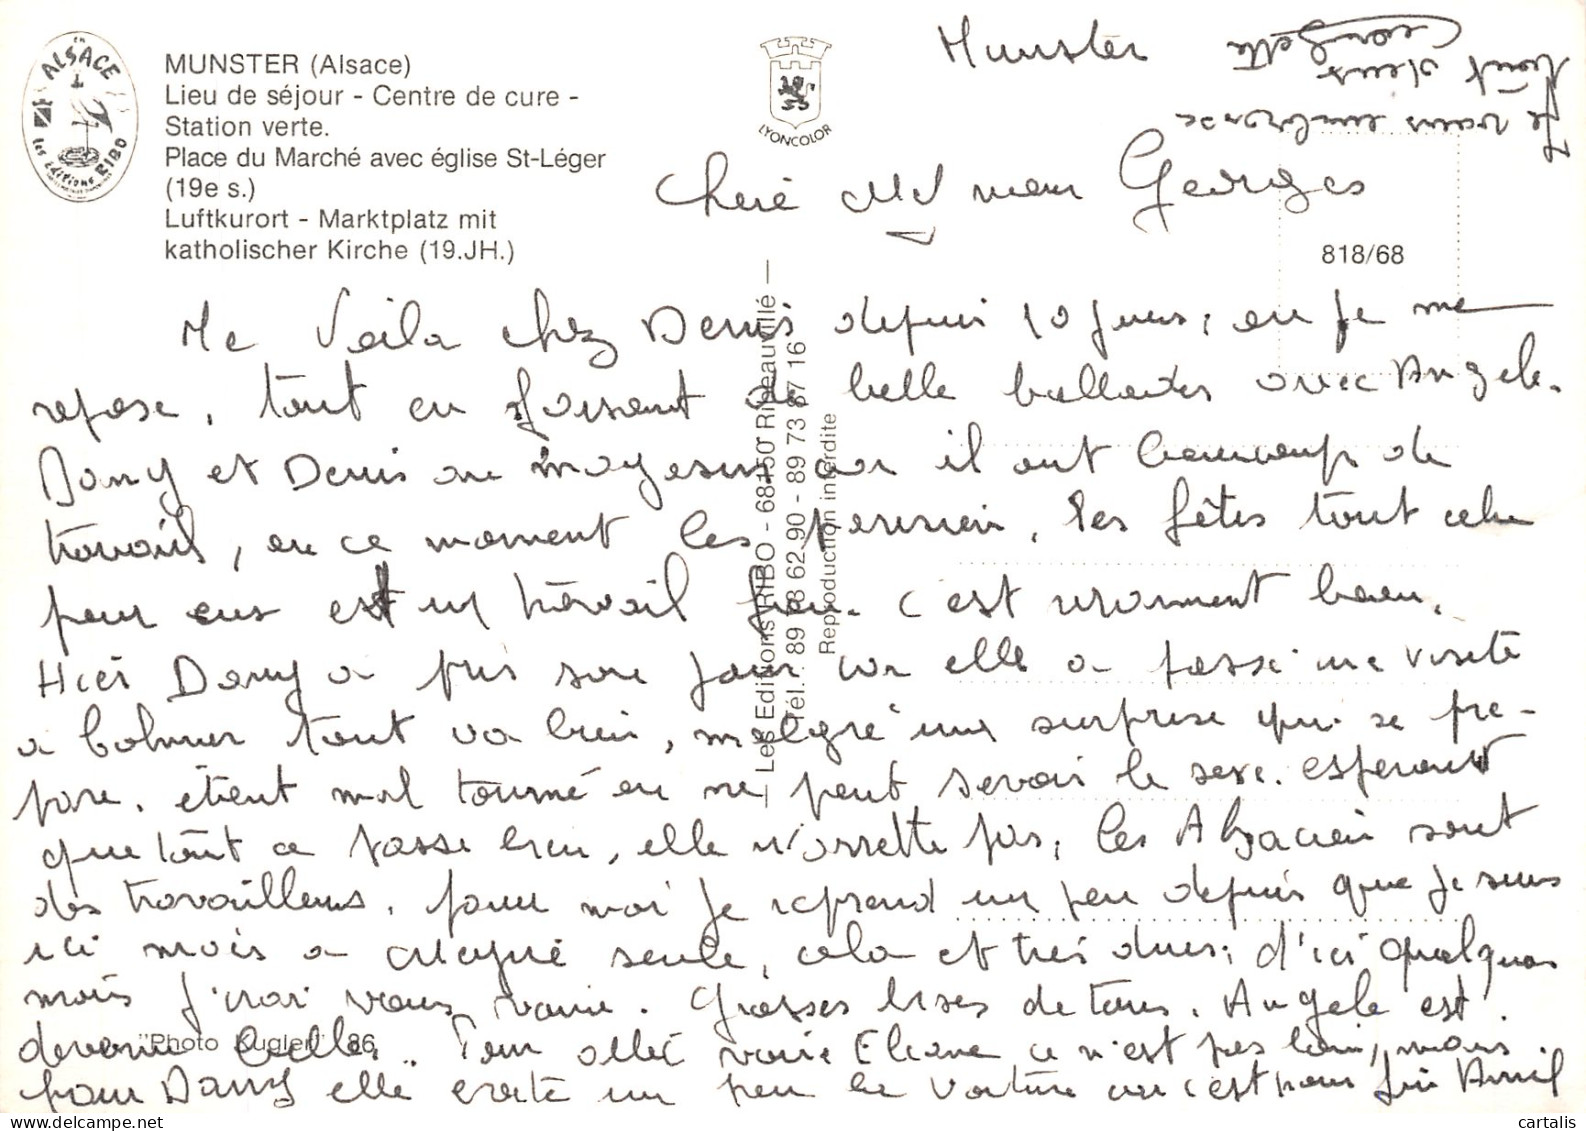 EN
ALSACE
les éditions RIBO
MUNSTER (Alsace)
Lieu de séjour - Centre de cure -
Station verte.
Place du Marché avec église St-Léger
(19e s.)
Luftkurort - Marktplatz mit
katholischer Kirche (19.JH.)
LYONCOLOR
Les Editions RIBO - 68150 Ribeauvillé
Tél. : 89 78 62 90 - 89 73 87 16
Reproduction interdite
818/68
"Photo Kugler" 86
Munster
Cheré et mon Georges
Me Voila chez Denis depuis 10 jours, ou je me
repose, tout en foisant de belle ballades avec Angele.
Dany et Denis on car il ont beaucoup de
travail, en ce moment les les fêtes tout cela
pour eus est un travail fou. c'est vraiment beau.
Hier Dany a pris son jour car elle a passé une visite
a Colmer tout va bien, malgré une surprise qui se pre-
pare. étent mal tourné on ne peut savoir le sexe. esperont
que tout ce passe bien, elle n'arrette pas, les Alzacien sont
des travailleurs. pour moi je reprend un peu depuis que je suis
ici mois a seule, cela et très dur; d'ici quelques
mois j'irai vous voire. Grosses bises de tous. Angele est
devenu belle. Pour allé voire Eliane ce n'est pas loin, mais
pour Dany elle evite un peu la voiture car c'est pour fin Avril
Je vous embrasse
tout deux
Georgette
cartalis